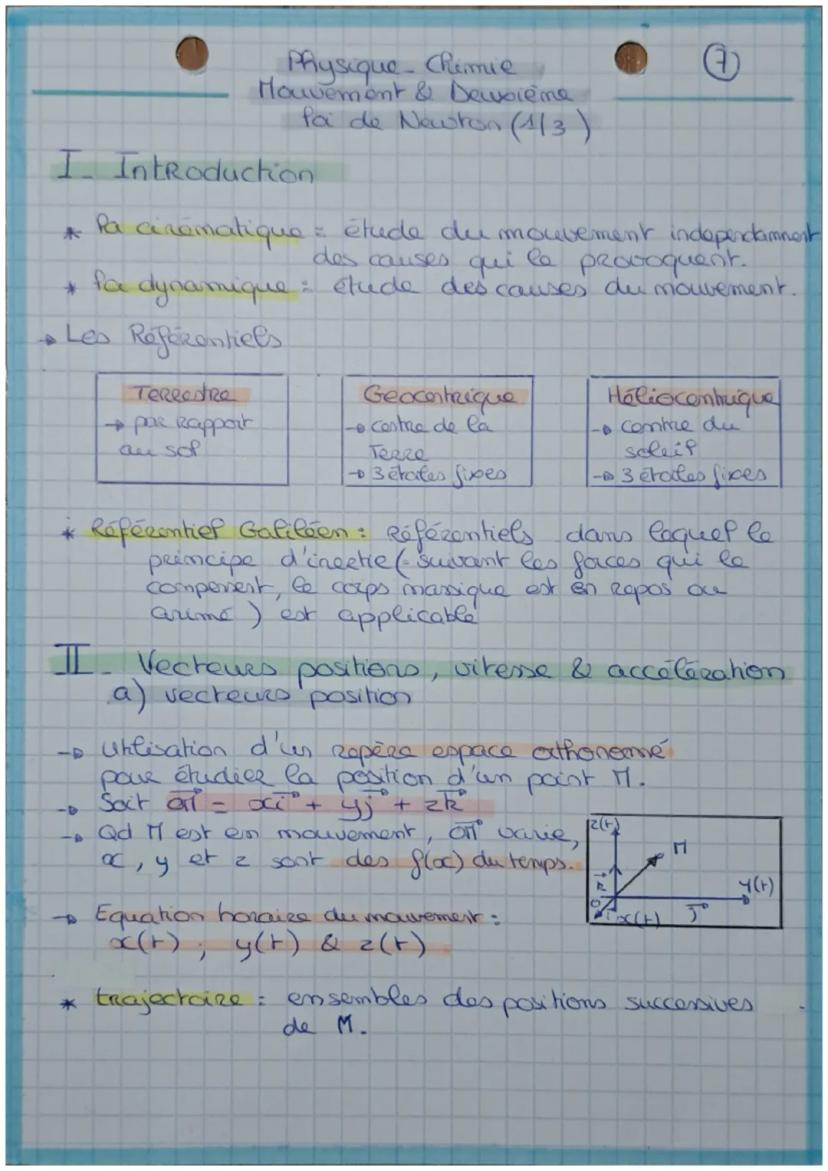 Physique - Chimie
7
Mouvement & Deuxième
loi de Newton (1/3)
I - Introduction
* la cinématique = étude du mouvement indépendamment
des causes qui le provoquent.
* la dynamique = étude des causes du mouvement.
→ Les Référentiels
Terrestre
→ par rapport
au sol
Geocentrique
→ centre de la
Terre
→ 3 étoiles fixes
Héliocentrique
→ centre du
soleil
→ 3 étoiles fixes
* Référentiel Galiléen : Référentiels dans lequel le
principe d'inertie (= suivant les forces qui le
compensent, le corps massique est en repos ou
animé) est applicable
II - Vecteurs positions, vitesse & accélération
a) vecteurs position
→ Utilisation d'un repère espace orthonormé
pour étudier la position d'un point M.
→ Soit OM = xi + yj + zk
→ Qd M est en mouvement, OM varie,
x, y et z sont des f(x) du temps.
z(t)
M
k
y(t)
O
i
x(t)
j
→ Equation horaire du mouvement :
x(t) ; y(t) & z(t)
* trajectoire : ensembles des positions successives
de M.